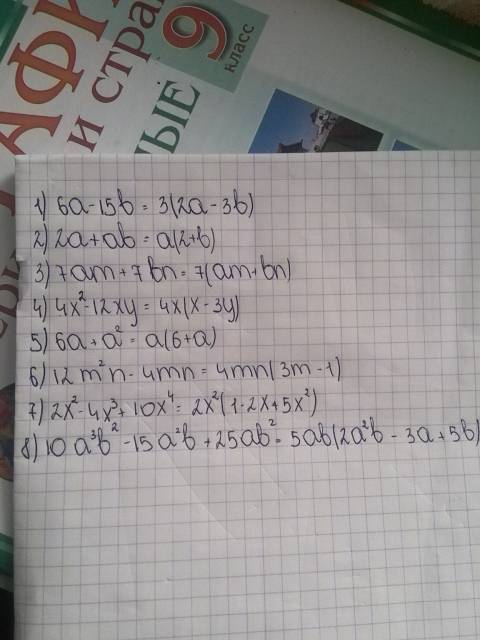 АФИ
и стра
ТЫЕ
9
класс
1) 6a-15b = 3(2a-3b)
2) 2a+ab = a(2+b)
3) 7am+7bn = 7(am+bn)
4) 4x²-12xy = 4x(x-3y)
5) 6a+a² = a(6+a)
6) 12m²n-4mn = 4mn(3m-1)
7) 2x²-4x³+10x⁴ = 2x²(1-2x+5x²)
8) 10a³b²-15a²b+25ab² = 5ab(2a²b-3a+5b)